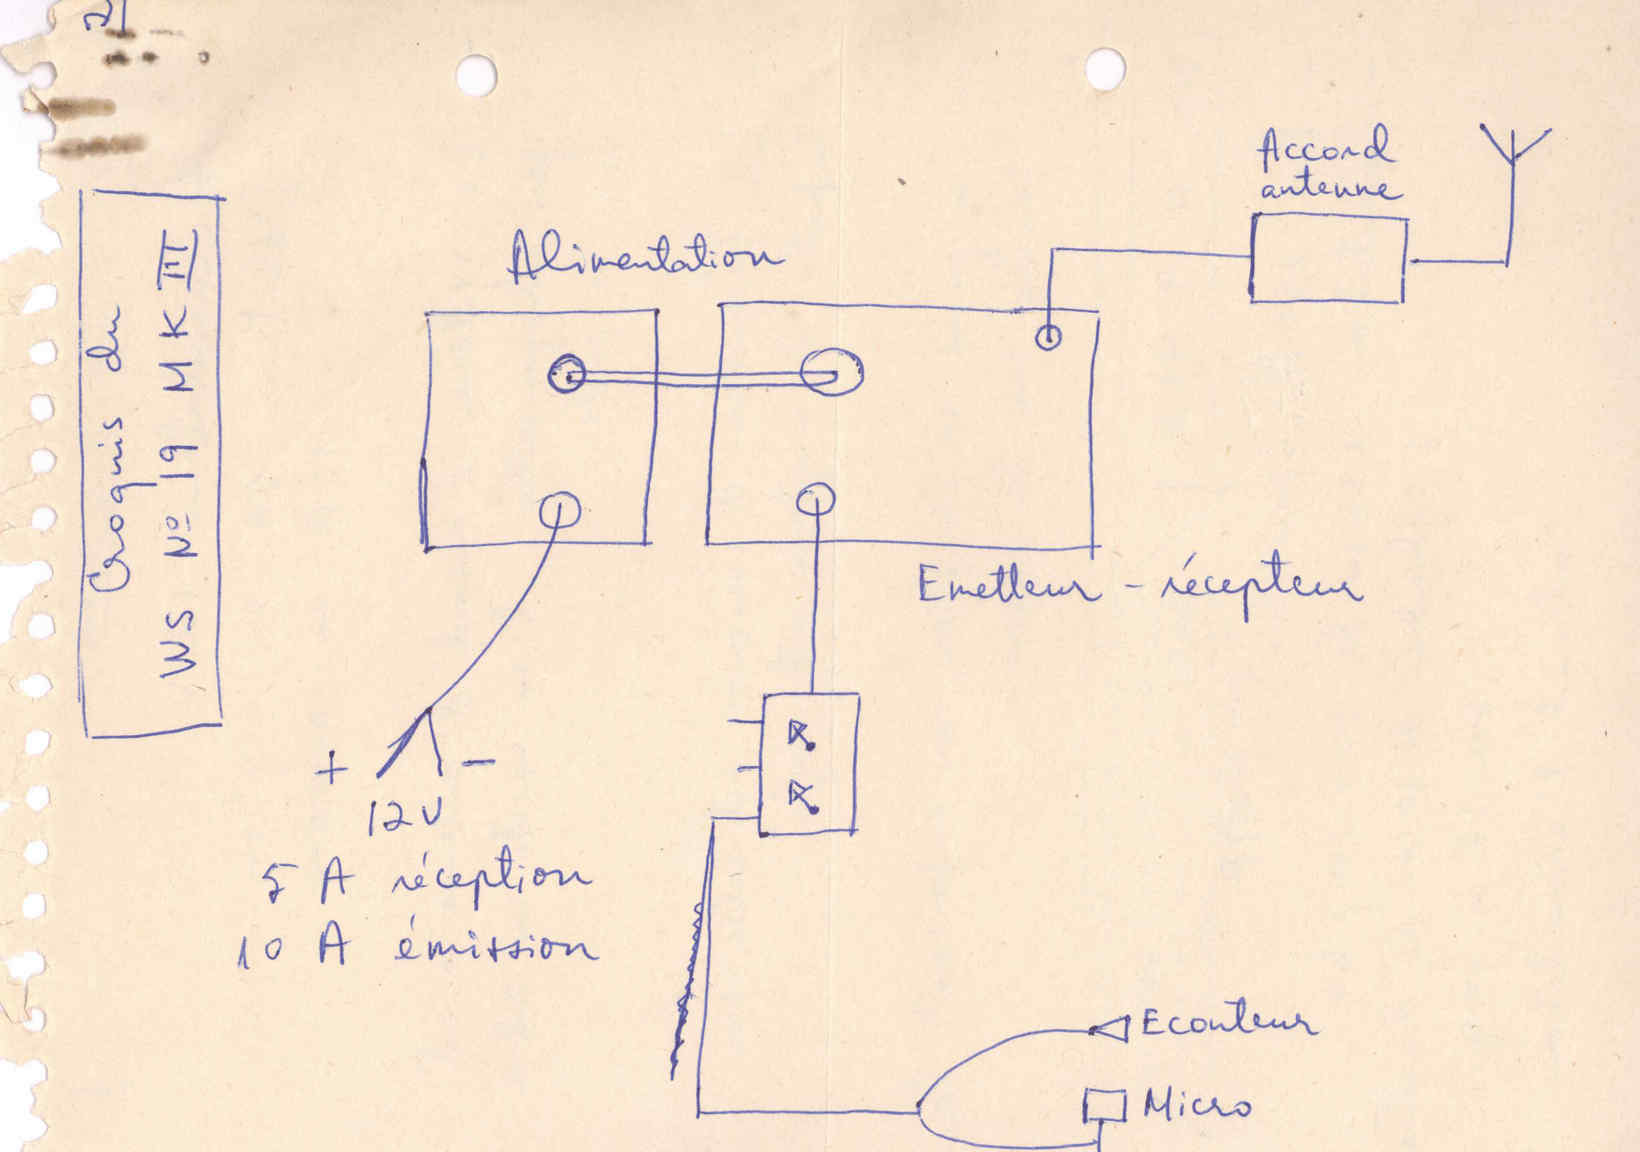 Croquis du
WS Nº 19 MK III
Alimentation
Accord
antenne
Emetteur - récepteur
+ -
12V
5 A réception
10 A émission
Ecouteur
Micro